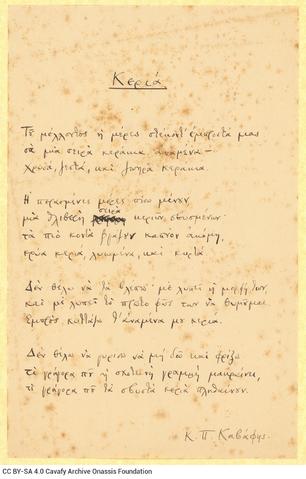 Κεριά
Τοῦ μέλλοντος ἡ μέρες στέκοντ' ἐμπροστά μας
σὰ μιὰ σειρὰ κεράκια ἀναμένα —
χρυσά, ζεστά, καὶ ζωηρὰ κεράκια.
Ἡ περασμένες μέρες πίσω μένουν,
μιὰ θλιβερὴ σειρὰ κεριῶν σβυσμένων·
τὰ πιὸ κοντὰ βγάζουν καπνὸν ἀκόμη,
κρύα κεριά, λυωμένα, καὶ κυρτά.
Δὲν θέλω νὰ τὰ βλέπω· μὲ λυπεῖ ἡ μορφή των,
καὶ μὲ λυπεῖ τὸ πρῶτο φῶς των νὰ θυμοῦμαι.
Ἐμπρὸς κυττάζω τ' ἀναμένα μου κεριά.
Δὲν θέλω νὰ γυρίσω νὰ μὴ διῶ καὶ φρίξω
τί γρήγορα ποῦ ἡ σκοτεινὴ γραμμὴ μακραίνει,
τί γρήγορα ποῦ τὰ σβυστὰ κεριὰ πληθαίνουν.
Κ. Π. Καβάφης
CC BY-SA 4.0 Cavafy Archive Onassis Foundation